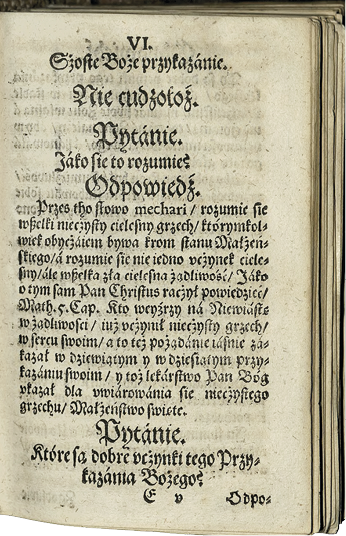 VI.
Szoste Boże przykazánie.
Nie cudzołoż.
Pytánie.
Jáko sie to rozumie?
Odpowiedź.
Przes tho słowo mechari / rozumie sie
wßelki nieczysty cielesny grzech / którymkol-
wiek obyczáiem bywa krom stanu Małżeń-
skiego / á rozumie sie nie iedno vczynek ciele-
sny / ále wßelka zła cielesna żądliwość / Jáko
o tym sam Pan Christus raczył powiedzieć /
Math. 5. Cap. Kto weyźrzy ná Niewiástę
w żądliwości / iuż vczynił nieczysty grzech /
w sercu swoim / a to też pożądánie iáśnie zá-
kazał w dziewiątym y w dziesiątym przy-
kazániu swoim / y toż lekárstwo Pan Bóg
vkazał dla vwiárowánia sie nieczystego
grzechu / Małżeństwo święte.
Pytánie.
Które są dobre vczynki tego Przy-
kazánia Bożego?
E v Odpo-